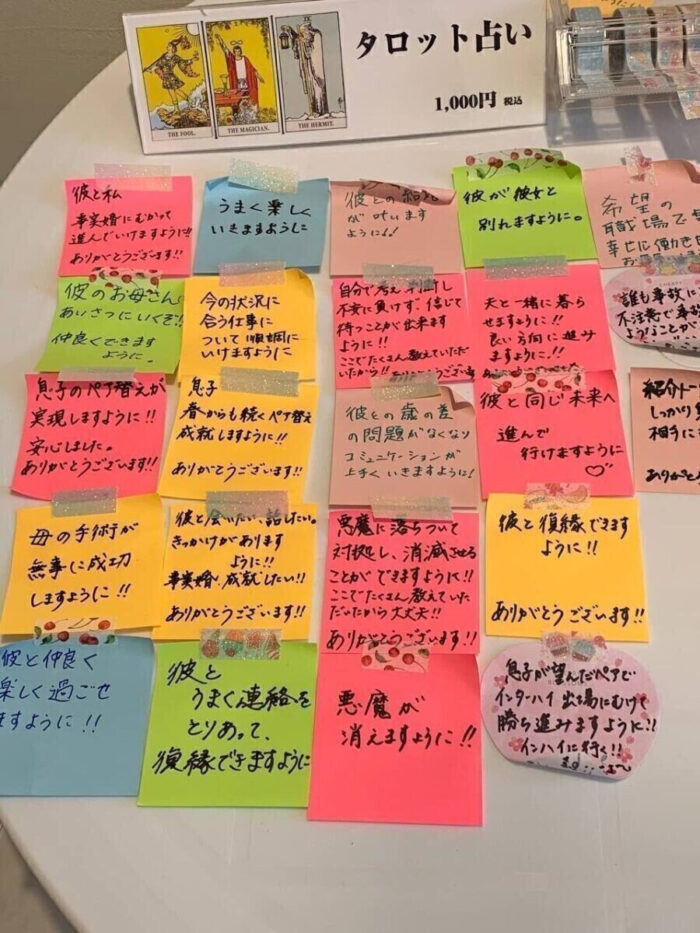 タロット占い
1,000円 税込
THE FOOL.
THE MAGICIAN.
THE HERMIT.
彼と私
事実婚にむかって
進んでいけますように!!
ありがとうございます!!
うまく楽しく
いきますように
彼との
が叶います
ように!!
彼が彼女と
別れますように。
希望の
職場で
幸せに働き
彼のお母さん
あいさつにいくぞ!!
仲良くできます
ように。
今の状況に
合う仕事に
ついて順調に
いけますように
自分で考え
不安に負けず、信じて
待つことが出来ます
ように!!
ここでたくさん教えていただ
いたから!! ありがとうございます
夫と一緒に暮ら
せますように!!
良い方向に進み
ますように!!
誰も事故に
不注意で事故
ようなことが
息子のペア替えが
実現しますように!!
安心しました。
ありがとうございます!!
息子
春からも続くペア替え
成就しますように!!
ありがとうございます!!
彼との歳の差
の問題がなくなり
コミュニケーションが
上手くいきますように!
彼と同じ未来へ
進んで
行けますように
♡
紹介
しっかり
相手に
ありがと
母の手術が
無事に成功
しますように!!
彼と会いたい、話したい。
きっかけがあります
ように!!
事実婚、成就したい!!
ありがとうございます!!
悪魔に落ちついて
対処し、消滅させる
ことができますように!!
ここでたくさん教えていた
だいたから大丈夫!!
ありがとうございます!!
彼と復縁できます
ように!!
ありがとうございます!!
彼と仲良く
楽しく過ごせ
ますように!!
彼と
うまく連絡を
とりあって、
復縁できますように
悪魔が
消えますように!!
息子が望んだペアで
インターハイ出場にむけて
勝ち進みますように!!
インハイに行く!!